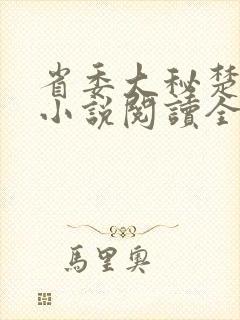 省委大秘楚
小說閱讀全
馬里奧